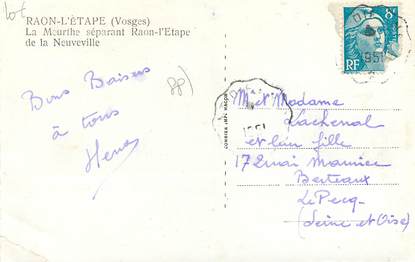 Lot
RAON-L'ÉTAPE (Vosges)
La Meurthe séparant Raon-l'Etape
de la Neuveville
8F
RF
1951
Bons Baisers
à tous
M et Madame
Lachenal
et leur fille
17 quai Maurice
Berteaux
Le Pecq
(Seine et Oise)
1951